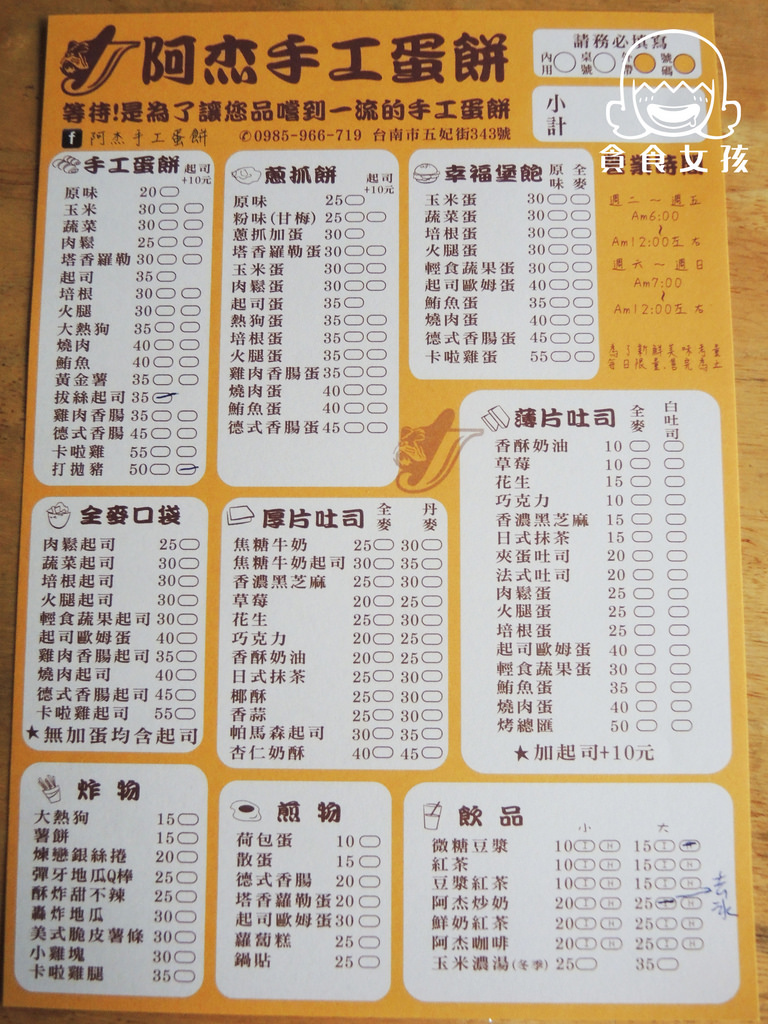 阿杰手工蛋餅
等待!是為了讓您品嚐到一流的手工蛋餅
f 阿杰手工蛋餅 ✆0985-966-719 台南市五妃街343號
請務必填寫
內用 桌號 號碼
小計
貪食女孩
週二～週五
Am6:00
~
Am12:00左右
週六～週日
Am7:00
~
Am12:00左右
為了新鮮美味考量
每日限量,售完為止
手工蛋餅 起司+10元
原味 20
玉米 30
蔬菜 30
肉鬆 25
塔香羅勒 30
起司 35
培根 30
火腿 30
大熱狗 35
燒肉 40
鮪魚 40
黃金薯 35
拔絲起司 35
雞肉香腸 35
德式香腸 45
卡啦雞 55
打拋豬 50
蔥抓餅 起司+10元
原味 25
粉味(甘梅) 25
蔥抓加蛋 30
塔香羅勒蛋 30
玉米蛋 30
肉鬆蛋 30
起司蛋 35
熱狗蛋 35
培根蛋 35
火腿蛋 35
雞肉香腸蛋 35
燒肉蛋 40
鮪魚蛋 40
德式香腸蛋 45
幸福堡飽 原味 全麥
玉米蛋 30
蔬菜蛋 30
培根蛋 30
火腿蛋 30
輕食蔬果蛋 30
起司歐姆蛋 30
鮪魚蛋 35
燒肉蛋 40
德式香腸蛋 45
卡啦雞蛋 55
薄片吐司 全麥 白吐司
香酥奶油 10
草莓 10
花生 15
巧克力 10
香濃黑芝麻 15
日式抹茶 15
夾蛋吐司 20
法式吐司 20
肉鬆蛋 25
火腿蛋 25
培根蛋 25
起司歐姆蛋 40
輕食蔬果蛋 30
鮪魚蛋 35
燒肉蛋 40
烤總匯 50
★加起司+10元
全麥口袋
肉鬆起司 25
蔬菜起司 30
培根起司 30
火腿起司 30
輕食蔬果起司 30
起司歐姆蛋 40
雞肉香腸起司 35
燒肉起司 40
德式香腸起司 45
卡啦雞起司 55
★無加蛋均含起司
厚片吐司 全麥 丹麥
焦糖牛奶 25 30
焦糖牛奶起司 30 35
香濃黑芝麻 25 30
草莓 20 25
花生 25 30
巧克力 20 25
香酥奶油 20 25
日式抹茶 25 30
椰酥 25 30
香蒜 25 30
帕馬森起司 30 35
杏仁奶酥 40 45
炸物
大熱狗 15
薯餅 15
煉戀銀絲捲 20
彈牙地瓜Q棒 25
酥炸甜不辣 25
轟炸地瓜 30
美式脆皮薯條 30
小雞塊 30
卡啦雞腿 35
煎物
荷包蛋 10
散蛋 15
德式香腸 20
塔香蘿勒蛋 20
起司歐姆蛋 30
蘿蔔糕 25
鍋貼 25
飲品
小 大
微糖豆漿 10 I H 15 I H
紅茶 10 I H 15 I H
豆漿紅茶 10 I H 15 I H
阿杰炒奶 20 I H 25 I H
鮮奶紅茶 20 I H 25 I H
阿杰咖啡 20 I H 25 I H
玉米濃湯(冬季) 25 35
去冰